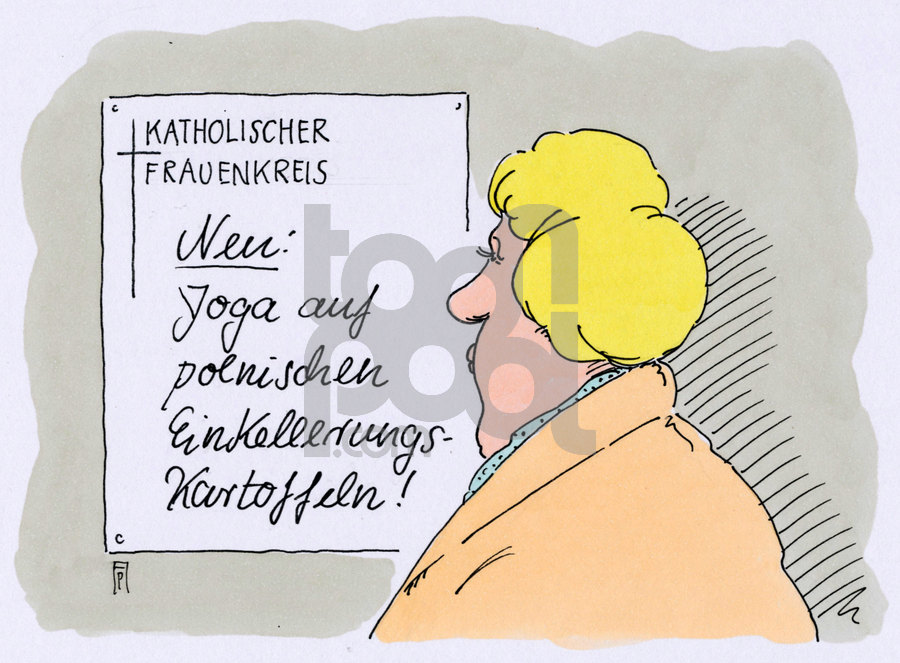 KATHOLISCHER
FRAUENKREIS
Neu:
Yoga auf
polnischen
Einkellerungs-
Kartoffeln!
toonpool
.com